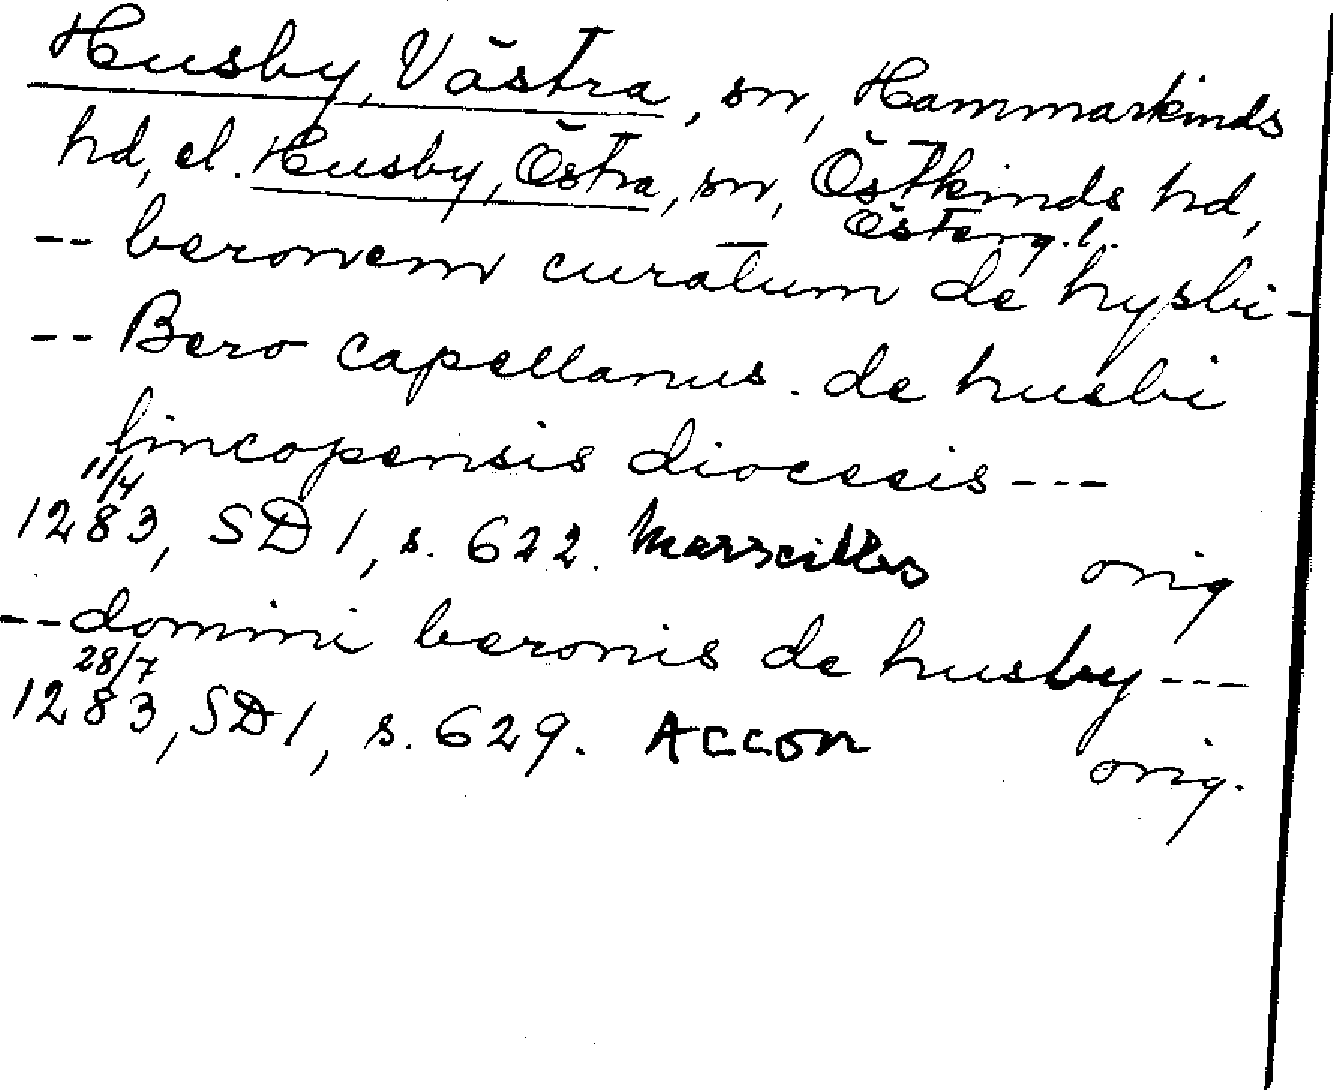 Husby, Västra, sn, Hammarkinds
hd, el. Husby, Östra, sn, Östkinds hd,
Österg. l.
-- beronem curatum de hysbi -
-- Bero capellanus. de husbi
lincopensis diocesis ---
11/4
1283, SD 1, s. 622. Marseilles orig
-- domini beronis de husby ---
28/7
1283, SD 1, s. 629. Accon orig.